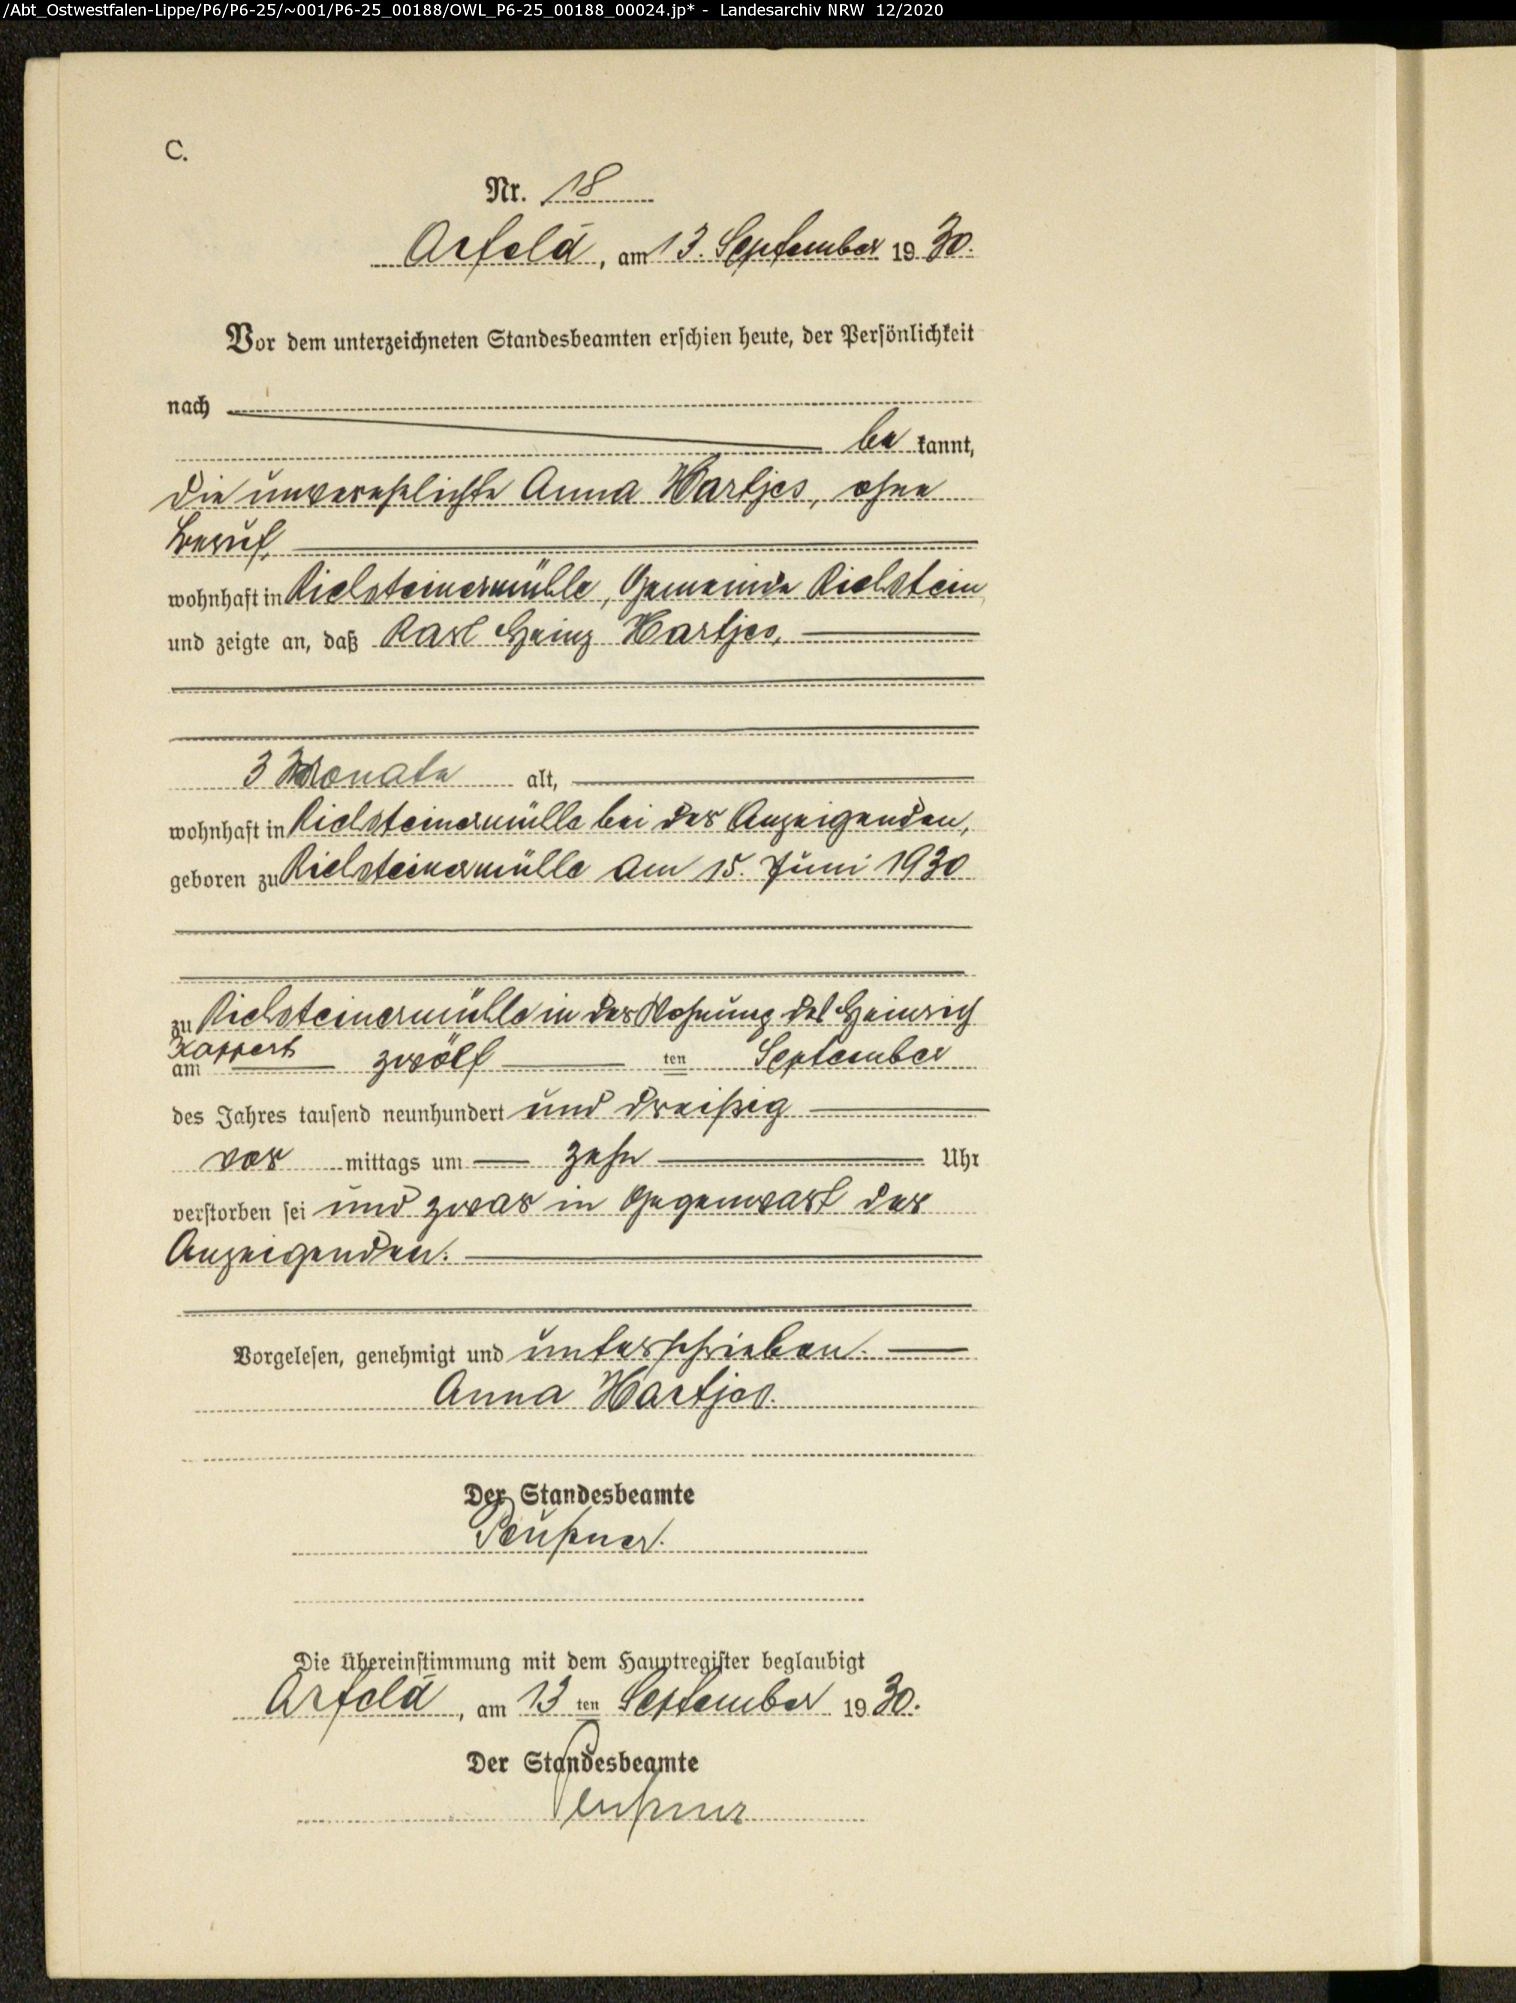 /Abt_Ostwestfalen-Lippe/P6/P6-25/~001/P6-25_00188/OWL_P6-25_00188_00024.jp* - Landesarchiv NRW 12/2020
C.
Nr. 18
Arfeld, am 13. September 1930.
Vor dem unterzeichneten Standesbeamten erschien heute, der Persönlichkeit
nach
be kannt,
die unverehelichte Anna Hartjes, ohne
Beruf,
wohnhaft in Richsteinermühle, Gemeinde Richstein,
und zeigte an, daß Karl Heinz Hartjes,
3 Monate alt,
wohnhaft in Richsteinermühle bei der Anzeigenden,
geboren zu Richsteinermühle am 15. Juni 1930
zu Richsteinermühle in der Wohnung des Heinrich
Kappert
am zwölf ten September
des Jahres tausend neunhundert und dreißig
vor mittags um zehn Uhr
verstorben sei und zwar in Gegenwart der
Anzeigenden.
Vorgelesen, genehmigt und unterschrieben.
Anna Hartjes.
Der Standesbeamte
Die Übereinstimmung mit dem Hauptregister beglaubigt
Arfeld, am 13 ten September 1930.
Der Standesbeamte